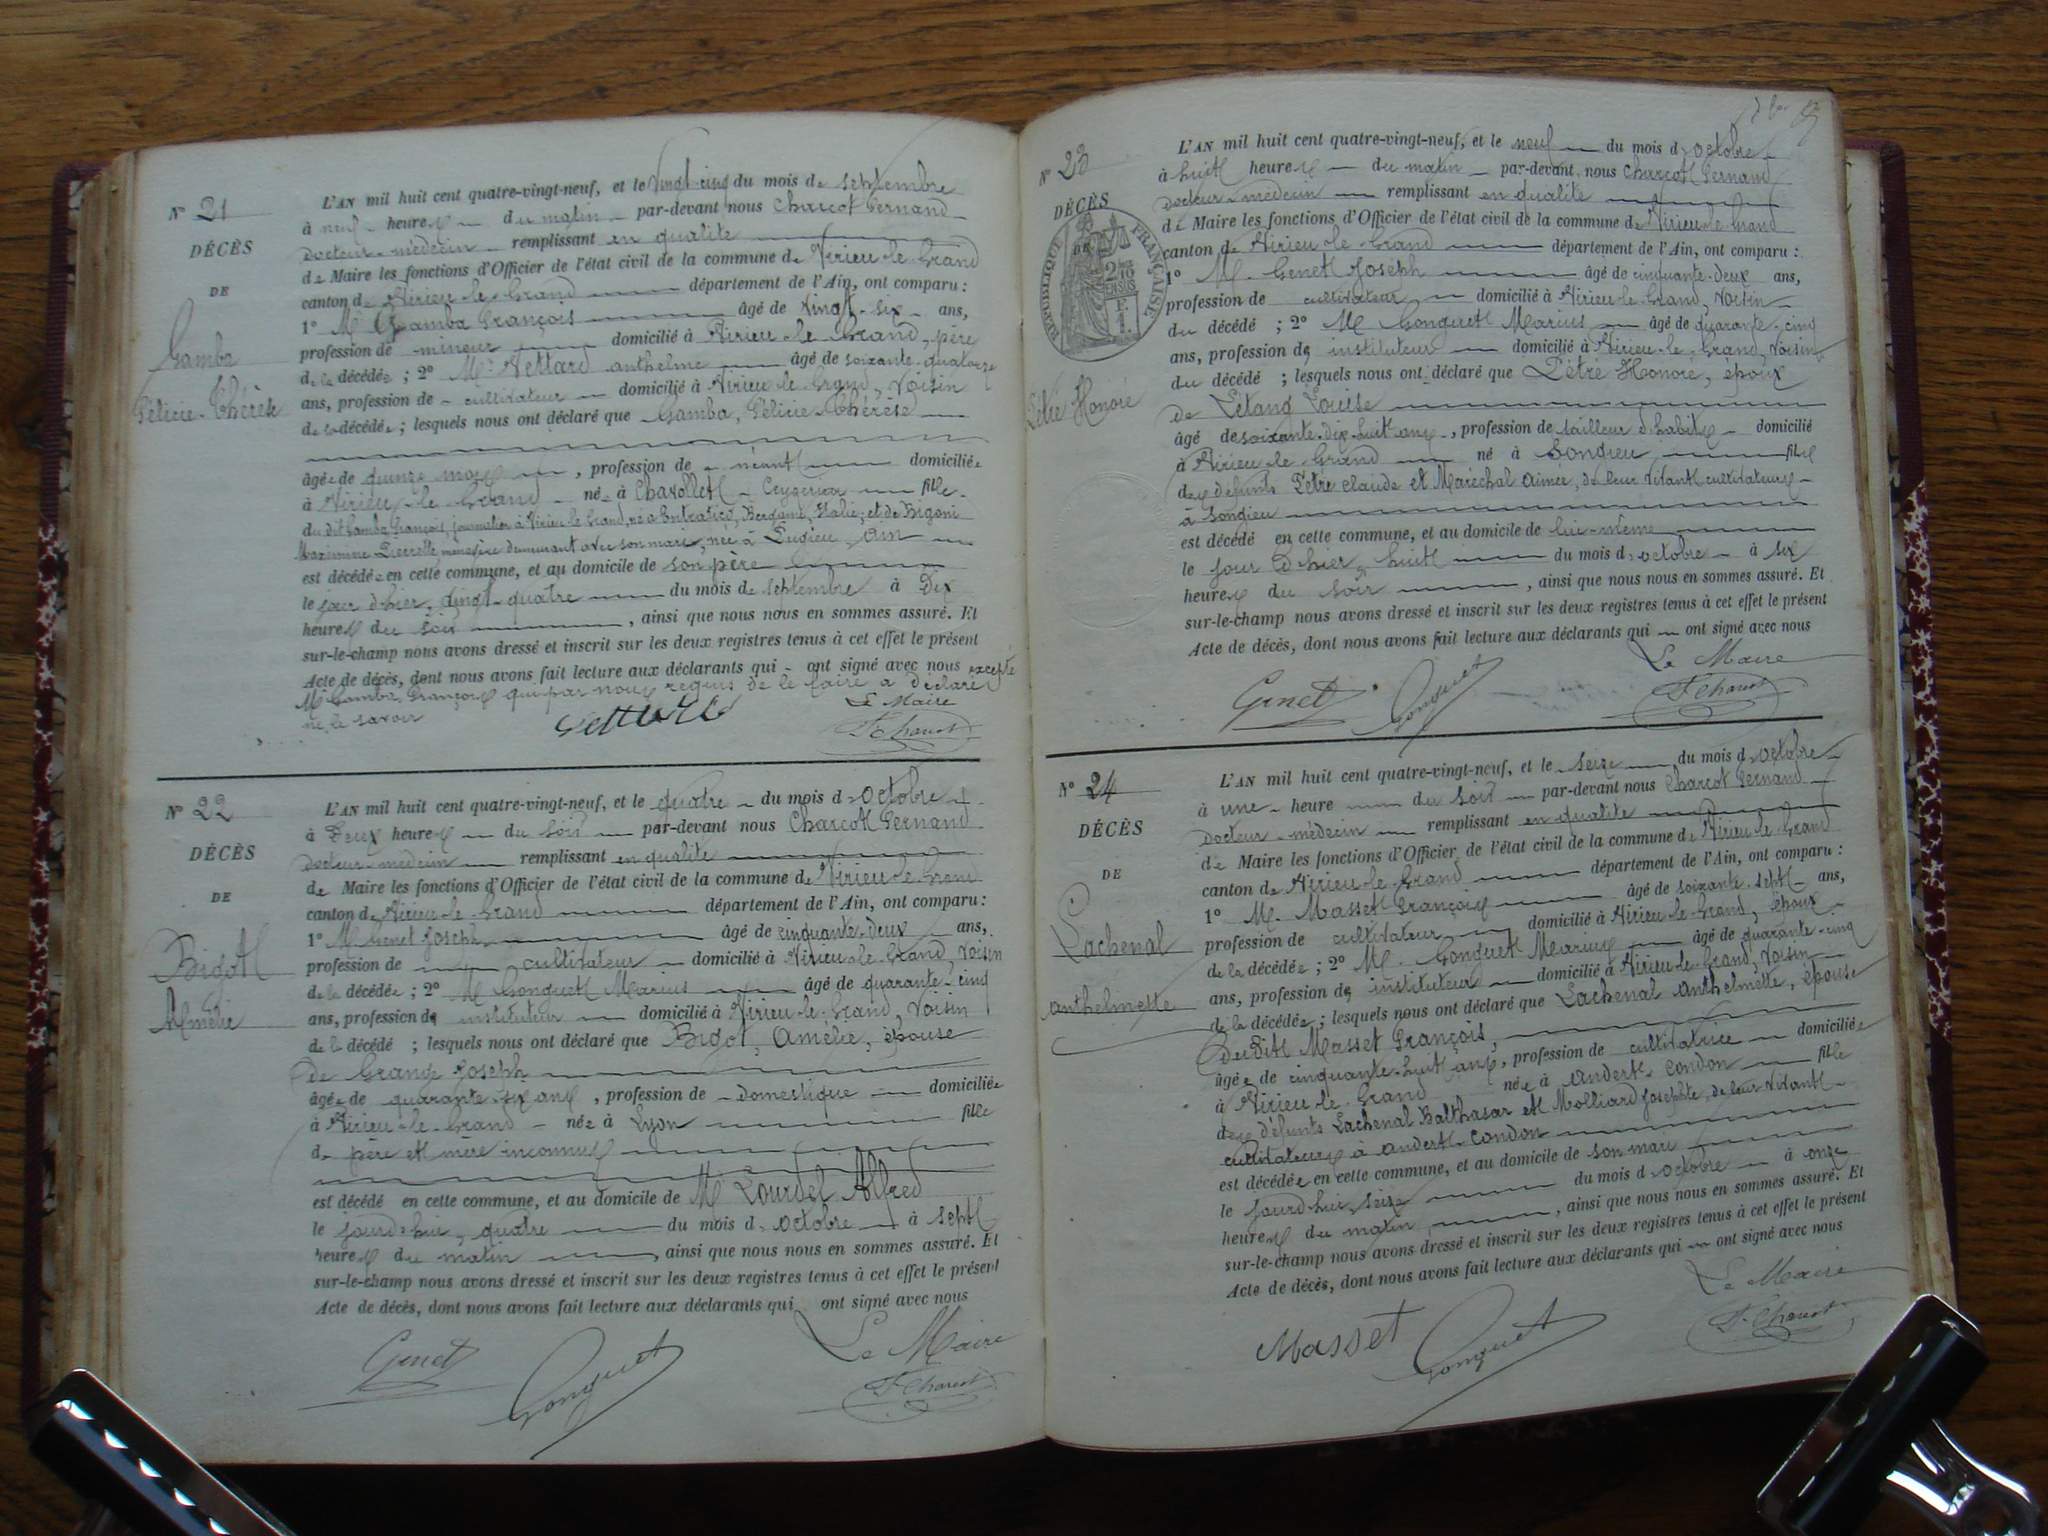 N° 21
DÉCÈS
DE
Gamba
Félicie-Thérèse
L'AN mil huit cent quatre-vingt-neuf, et le Vingt-cinq du mois de septembre
à neuf heures du matin par-devant nous Charcot Fernand
Docteur-médecin remplissant en qualité
de Maire les fonctions d'Officier de l'état civil de la commune de Virieu-le-Grand
canton de Virieu-le-Grand département de l'Ain, ont comparu :
1° M. Gamba François âgé de Vingt-six ans,
profession de mineur domicilié à Virieu-le-Grand, père
de la décédée ; 2° M. Vettard anthelme âgé de soixante-quatorze
ans, profession de cultivateur domicilié à Virieu-le-Grand, Voisin
de la décédée ; lesquels nous ont déclaré que Gamba, Félicie-Thérèse
âgée de quinze mois , profession de néant domiciliée
à Virieu-le-Grand née à Chavollet - Ceyzérieu fille
du dit Gamba François, journalier à Virieu le Grand, né à Entratico, Bergame, Italie; et de Bigoni
Pierrette ménagère demeurant avec son mari, née à Pugieu, Ain
est décédée en cette commune, et au domicile de son père
le jour d'hier, Vingt-quatre du mois de septembre à Dix
heures du soir , ainsi que nous nous en sommes assuré. Et
sur-le-champ nous avons dressé et inscrit sur les deux registres tenus à cet effet le présent
Acte de décès, dont nous avons fait lecture aux déclarants qui ont signé avec nous excepté
M. Gamba François qui par nous requis de le faire a déclaré
ne le savoir
Le Maire
Vettard
F. Charcot
N° 22
DÉCÈS
DE
Bigot
Amélie
L'AN mil huit cent quatre-vingt-neuf, et le quatre du mois d'octobre
à Deux heures du soir par-devant nous Charcot Fernand
Docteur-médecin remplissant en qualité
de Maire les fonctions d'Officier de l'état civil de la commune de Virieu-le-Grand
canton de Virieu-le-Grand département de l'Ain, ont comparu :
1° M. Genet Joseph âgé de cinquante-deux ans,
profession de cultivateur domicilié à Virieu-le-Grand, Voisin
de la décédée ; 2° M. Gonguet Marius âgé de quarante-cinq
ans, profession de instituteur domicilié à Virieu-le-Grand, Voisin
de la décédé ; lesquels nous ont déclaré que Bigot, Amélie, épouse
de Grange Joseph
âgée de quarante-six ans , profession de Domestique domiciliée
à Virieu-le-Grand née à Lyon fille
de père et mère inconnus
est décédé en cette commune, et au domicile de M. Lourdel Alfred
le jourd'hui, quatre du mois d'octobre à sept
heures du matin , ainsi que nous nous en sommes assuré. Et
sur-le-champ nous avons dressé et inscrit sur les deux registres tenus à cet effet le présent
Acte de décès, dont nous avons fait lecture aux déclarants qui ont signé avec nous
Le Maire
Genet
Gonguet
F. Charcot
N° 23
DÉCÈS
DE
RÉPUBLIQUE FRANÇAISE
Pêtre Honoré
L'AN mil huit cent quatre-vingt-neuf, et le neuf du mois d'octobre
à huit heures du matin par-devant nous Charcot Fernand
Docteur-médecin remplissant en qualité
de Maire les fonctions d'Officier de l'état civil de la commune de Virieu-le-Grand
canton de Virieu-le-Grand département de l'Ain, ont comparu :
1° M. Genet Joseph âgé de cinquante-deux ans,
profession de cultivateur domicilié à Virieu-le-Grand, Voisin
du décédé ; 2° M. Gonguet Marius âgé de quarante-cinq
ans, profession de instituteur domicilié à Virieu-le-Grand, Voisin
du décédé ; lesquels nous ont déclaré que Pêtre Honoré, époux
de Létang Louise
âgé de soixante-dix-huit ans , profession de tailleur d'habits domicilié
à Virieu-le-Grand né à Songieu fils
des défunts Pêtre Claude et Maréchal Aimée, de leur vivant cultivateurs
à Songieu
est décédé en cette commune, et au domicile de lui-même
le jour d'hier, huit du mois d'octobre à six
heures du soir , ainsi que nous nous en sommes assuré. Et
sur-le-champ nous avons dressé et inscrit sur les deux registres tenus à cet effet le présent
Acte de décès, dont nous avons fait lecture aux déclarants qui ont signé avec nous
Le Maire
Genet
Gonguet
F. Charcot
N° 24
DÉCÈS
DE
Lachenal
anthelmette
L'AN mil huit cent quatre-vingt-neuf, et le seize du mois d'octobre
à une heure du soir par-devant nous Charcot Fernand
Docteur-médecin remplissant en qualité
de Maire les fonctions d'Officier de l'état civil de la commune de Virieu-le-Grand
canton de Virieu-le-Grand département de l'Ain, ont comparu :
1° M. Masset François âgé de soixante-sept ans,
profession de cultivateur domicilié à Virieu-le-Grand, époux
de la décédée ; 2° M. Gonguet Marius âgé de quarante-cinq
ans, profession de instituteur domicilié à Virieu-le-Grand, Voisin
de la décédée ; lesquels nous ont déclaré que Lachenal anthelmette, épouse
du dit Masset François,
âgée de cinquante-huit ans, profession de cultivatrice domiciliée
à Virieu-le-Grand née à Andert-Condon fille
des défunts Lachenal Balthasar et Molliard Josephte, de leur vivant
cultivateurs à Andert-Condon
est décédée en cette commune, et au domicile de son mari
le jourd'hui, seize du mois d'octobre à onze
heures du matin , ainsi que nous nous en sommes assuré. Et
sur-le-champ nous avons dressé et inscrit sur les deux registres tenus à cet effet le présent
Acte de décès, dont nous avons fait lecture aux déclarants qui ont signé avec nous
Le Maire
Masset
Gonguet
F. Charcot